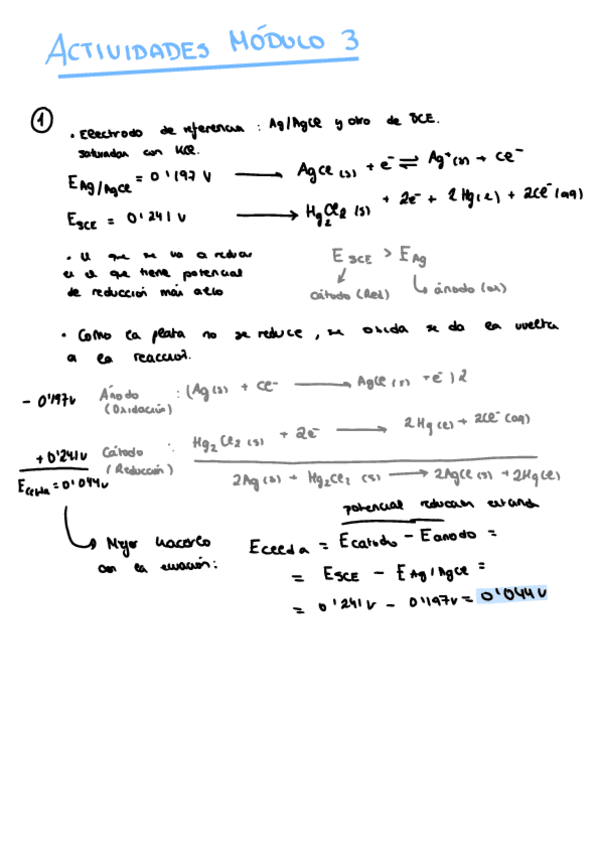 ACTIVIDADES MÓDULO 3
1
• Electrodo de referencia : Ag/AgCl y otro de SCE.
saturados con KCl.
E Ag/AgCl = 0'197 V → AgCl (s) + e⁻ ⇌ Ag⁺(s) + Cl⁻
E SCE = 0'241 V → Hg₂Cl₂ (s) + 2e⁻ + 2Hg(l) + 2Cl⁻(aq)
• El que se va a reducir
es el que tiene potencial
de reducción más alto
E SCE > E Ag
cátodo (Red) ánodo (ox)
• Como la plata no se reduce, se oxida se da la vuelta
a la reacción.
- 0'197V Ánodo : (Ag(s) + Cl⁻ → AgCl (s) + e⁻) 2
(Oxidación)
+ 0'241V Cátodo : Hg₂Cl₂(s) + 2e⁻ → 2Hg(l) + 2Cl⁻(aq)
(Reducción)
Ecelda = 0'044V 2Ag(s) + Hg₂Cl₂ (s) → 2AgCl(s) + 2Hg(l)
potencial reducción estándar
Mejor hacerlo
con la ecuación:
Ecelda = Ecatodo - Eanodo =
= E SCE - E Ag/AgCl =
= 0'241V - 0'197V = 0'044V